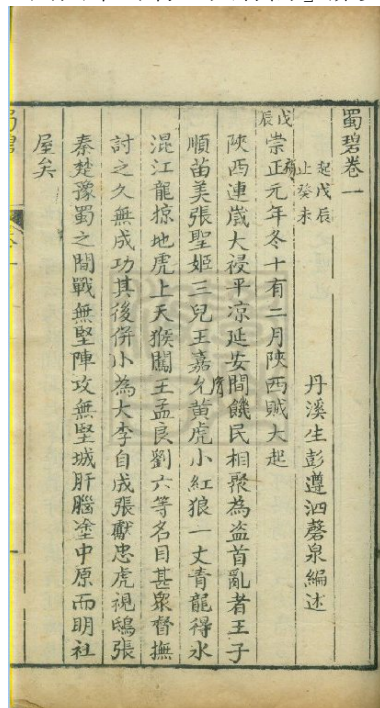 蜀碧卷一
起戊辰
止癸未
丹溪生彭遵泗磬泉編述
戊辰
崇正元年冬十有二月陝西賊大起
禎
陝西連歲大祲平凉延安間饑民相聚為盗首亂者王子
順苗美張聖姬三兒王嘉允黄虎小紅狼一丈青龍得水
混江龍掠地虎上天猴闖王孟良劉六等名目甚衆督撫
討之久無成功其後併小為大李自成張獻忠虎視鴟張
秦楚豫蜀之間戰無堅陣攻無堅城肝腦塗中原而明社
屋矣